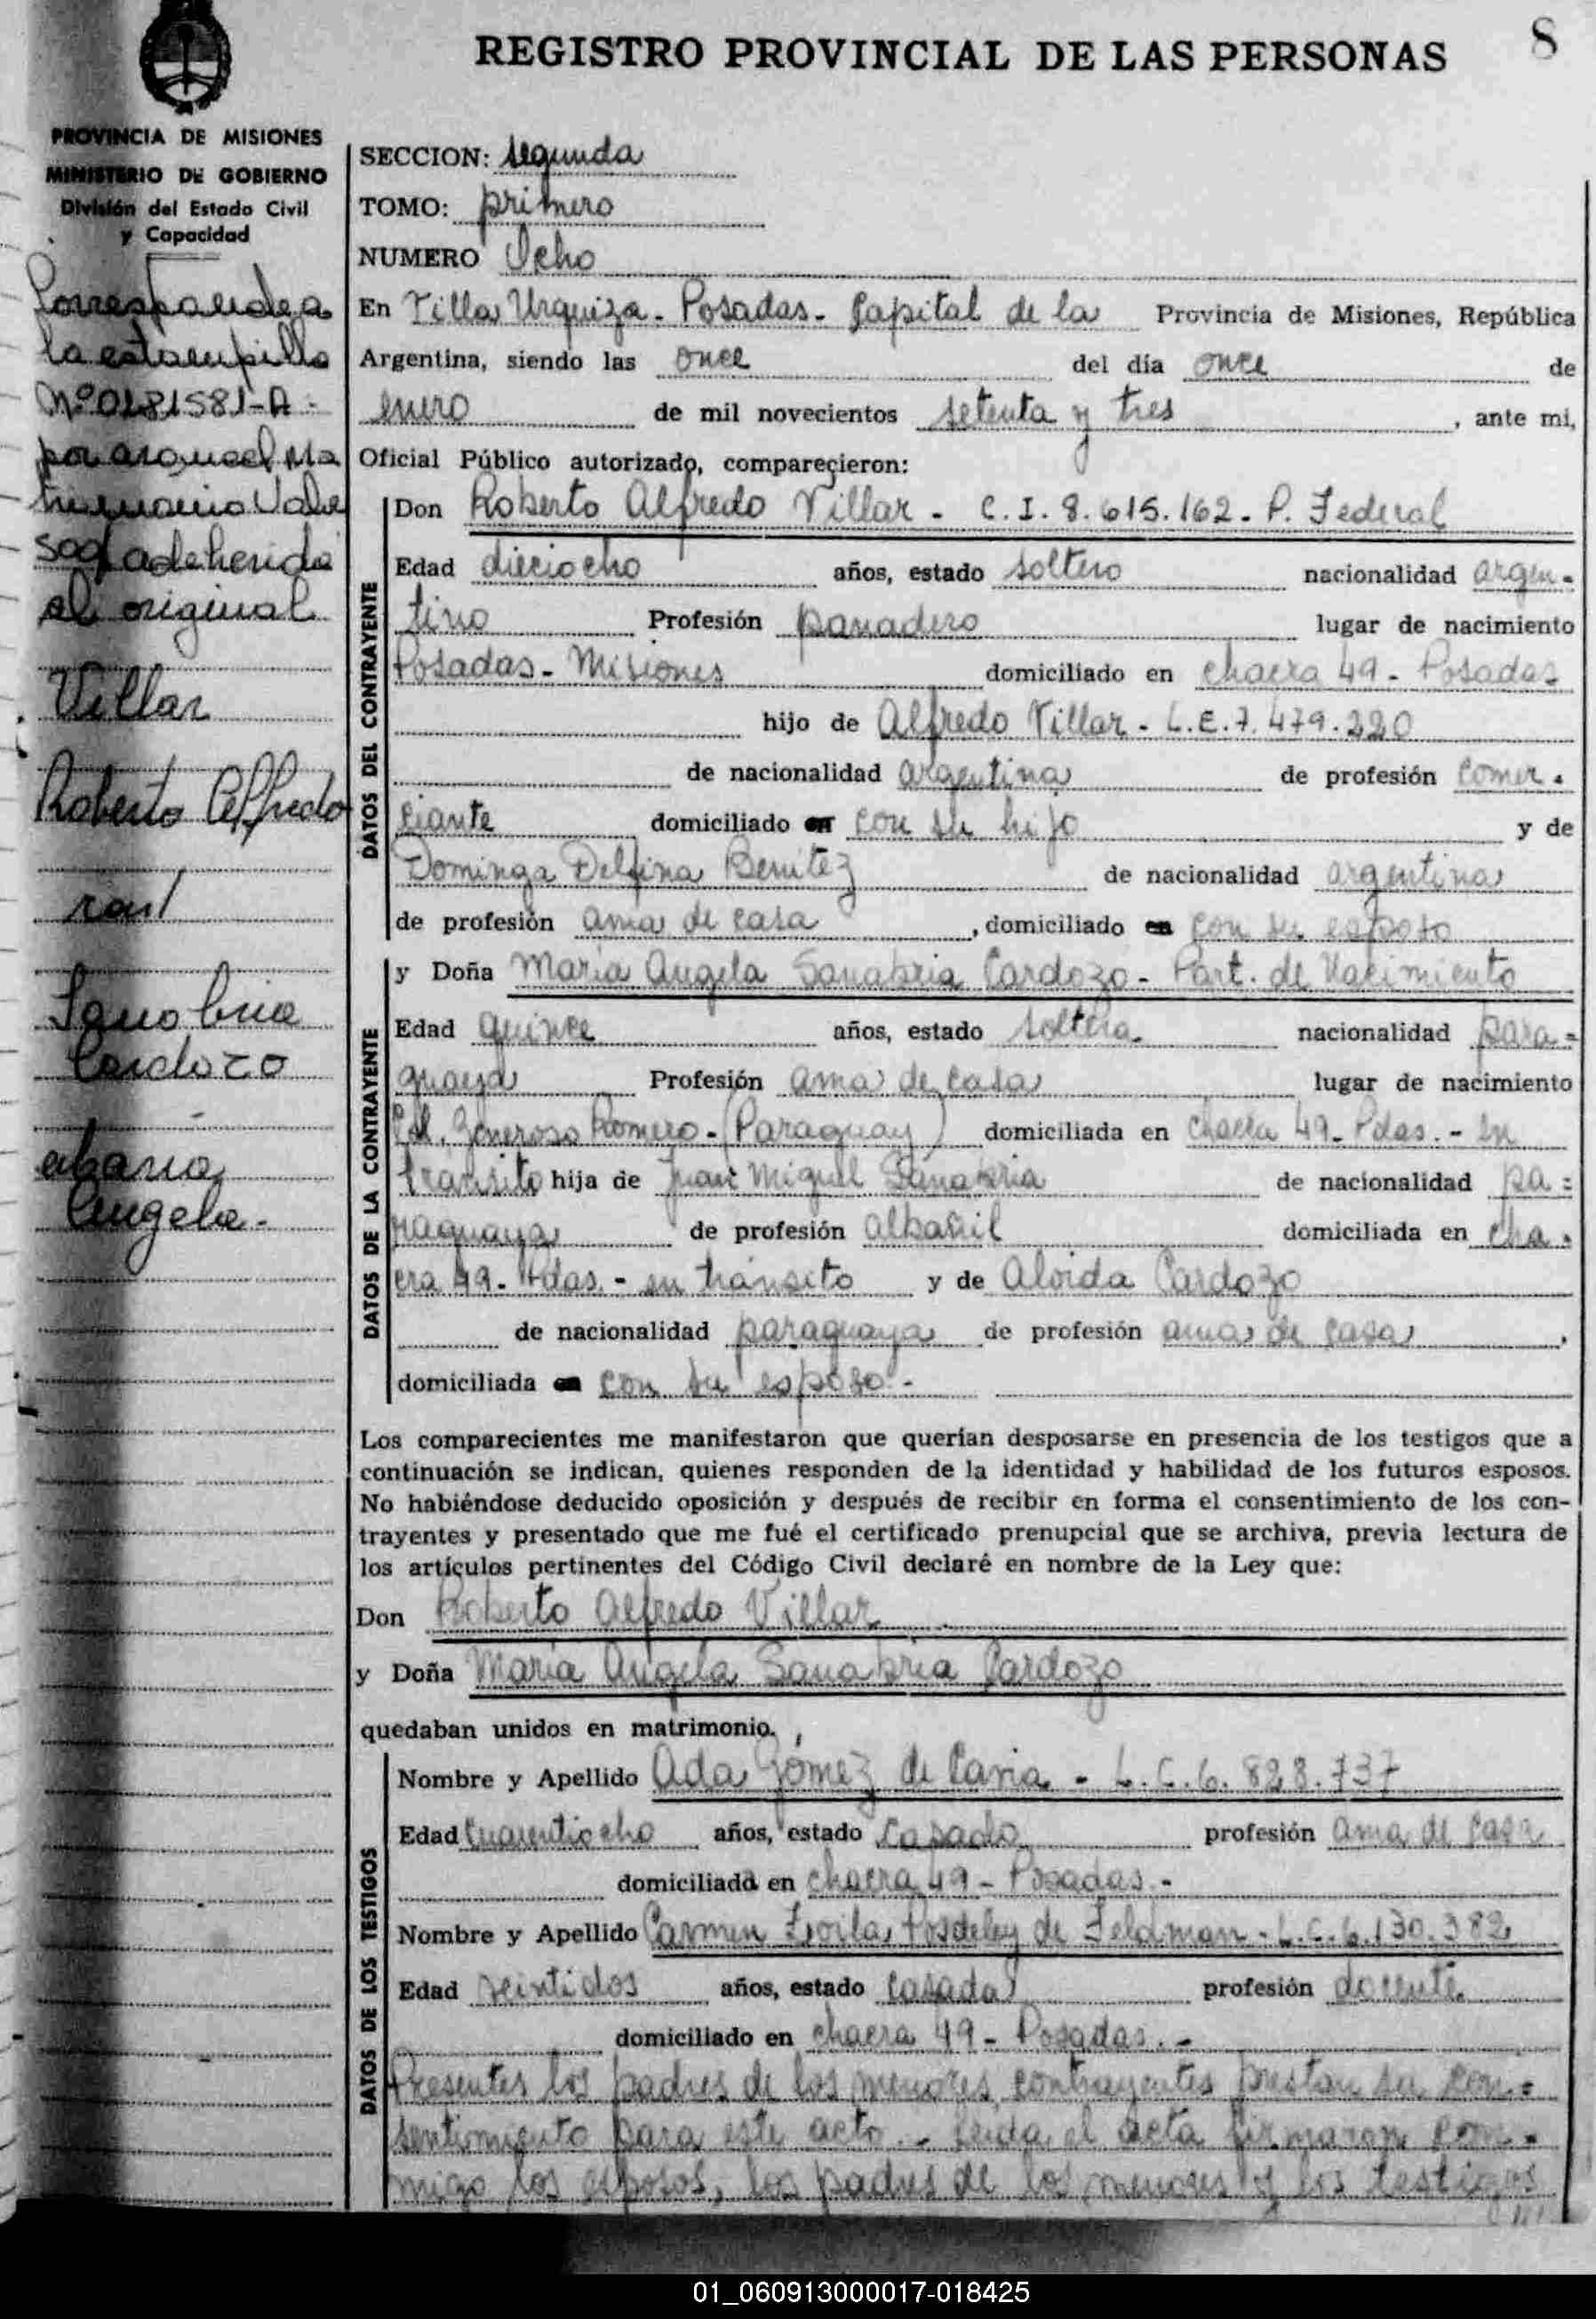 8
REGISTRO PROVINCIAL DE LAS PERSONAS
PROVINCIA DE MISIONES
MINISTERIO DE GOBIERNO
División del Estado Civil
y Capacidad
Corresponde a
la estampilla
Nº 0181581-A-
por arancel Ma
trimonio Valor
adherida
al original
Villar
Roberto Alfredo
con/
Sanabria
Cardozo
Maria
Angela.-
SECCION: segunda
TOMO: primero
NUMERO Ocho
En Villa Urquiza - Posadas - Capital de la Provincia de Misiones, República
Argentina, siendo las once del día once de
enero de mil novecientos setenta y tres, ante mi,
Oficial Público autorizado, comparecieron:
DATOS DEL CONTRAYENTE
Don Roberto Alfredo Villar - C.I. 8.615.162 - P. Federal
Edad dieciocho años, estado soltero nacionalidad argen-
tino Profesión panadero lugar de nacimiento
Posadas - Misiones domiciliado en chacra 49 - Posadas
hijo de Alfredo Villar - L.E. 7.479.220
de nacionalidad argentina de profesión comer-
ciante domiciliado en con su hijo y de
Dominga Delfina Benítez de nacionalidad argentina
de profesión ama de casa, domiciliado en con su esposo
DATOS DE LA CONTRAYENTE
y Doña María Angela Sanabria Cardozo - Part. de Nacimiento
Edad quince años, estado soltera nacionalidad para-
guaya Profesión ama de casa lugar de nacimiento
Cnl. Generoso Romero - (Paraguay) domiciliada en chacra 49 - Pdas. - en
tránsito hija de Juan Miguel Sanabria de nacionalidad pa-
raguaya de profesión albañil domiciliada en cha-
cra 49 - Pdas. - en tránsito y de Aloida Cardozo
de nacionalidad paraguaya de profesión ama de casa,
domiciliada en con su esposo.-
Los comparecientes me manifestaron que querían desposarse en presencia de los testigos que a
continuación se indican, quienes responden de la identidad y habilidad de los futuros esposos.
No habiéndose deducido oposición y después de recibir en forma el consentimiento de los con-
trayentes y presentado que me fué el certificado prenupcial que se archiva, previa lectura de
los artículos pertinentes del Código Civil declaré en nombre de la Ley que:
Don Roberto Alfredo Villar
y Doña María Angela Sanabria Cardozo
quedaban unidos en matrimonio.
DATOS DE LOS TESTIGOS
Nombre y Apellido Ada Gómez de - L.C. 6.828.737
Edad Cuarentiocho años, estado casado profesión ama de casa
domiciliada en chacra 49 - Posadas.-
Nombre y Apellido Carmen Zoila de Feldman - L.C. 6.130.382
Edad veintidos años, estado casada profesión docente
domiciliado en chacra 49 - Posadas.-
Presentes los padres de los menores contrayentes prestan su con-
sentimiento para este acto.- Leida el acta firmaron con-
migo los esposos, los padres de los menores y los testigos
01_060913000017-018425